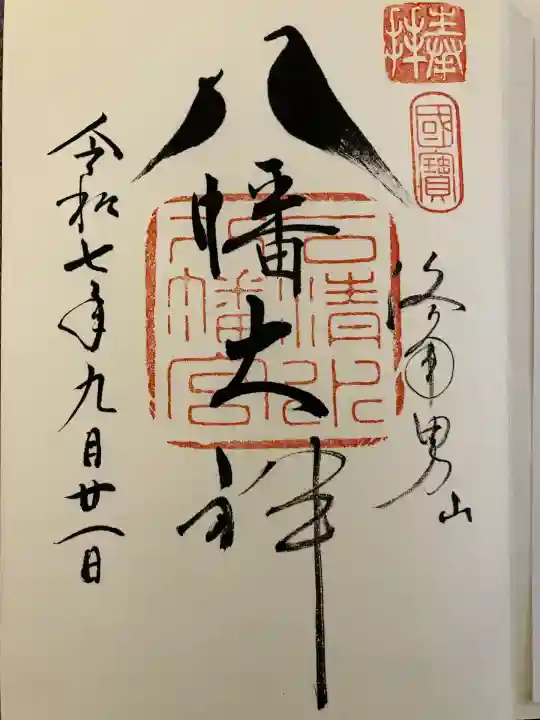 奉拝
國寶
洛南男山
八幡大神
石清水
八幡宮
令和七年九月廿一日